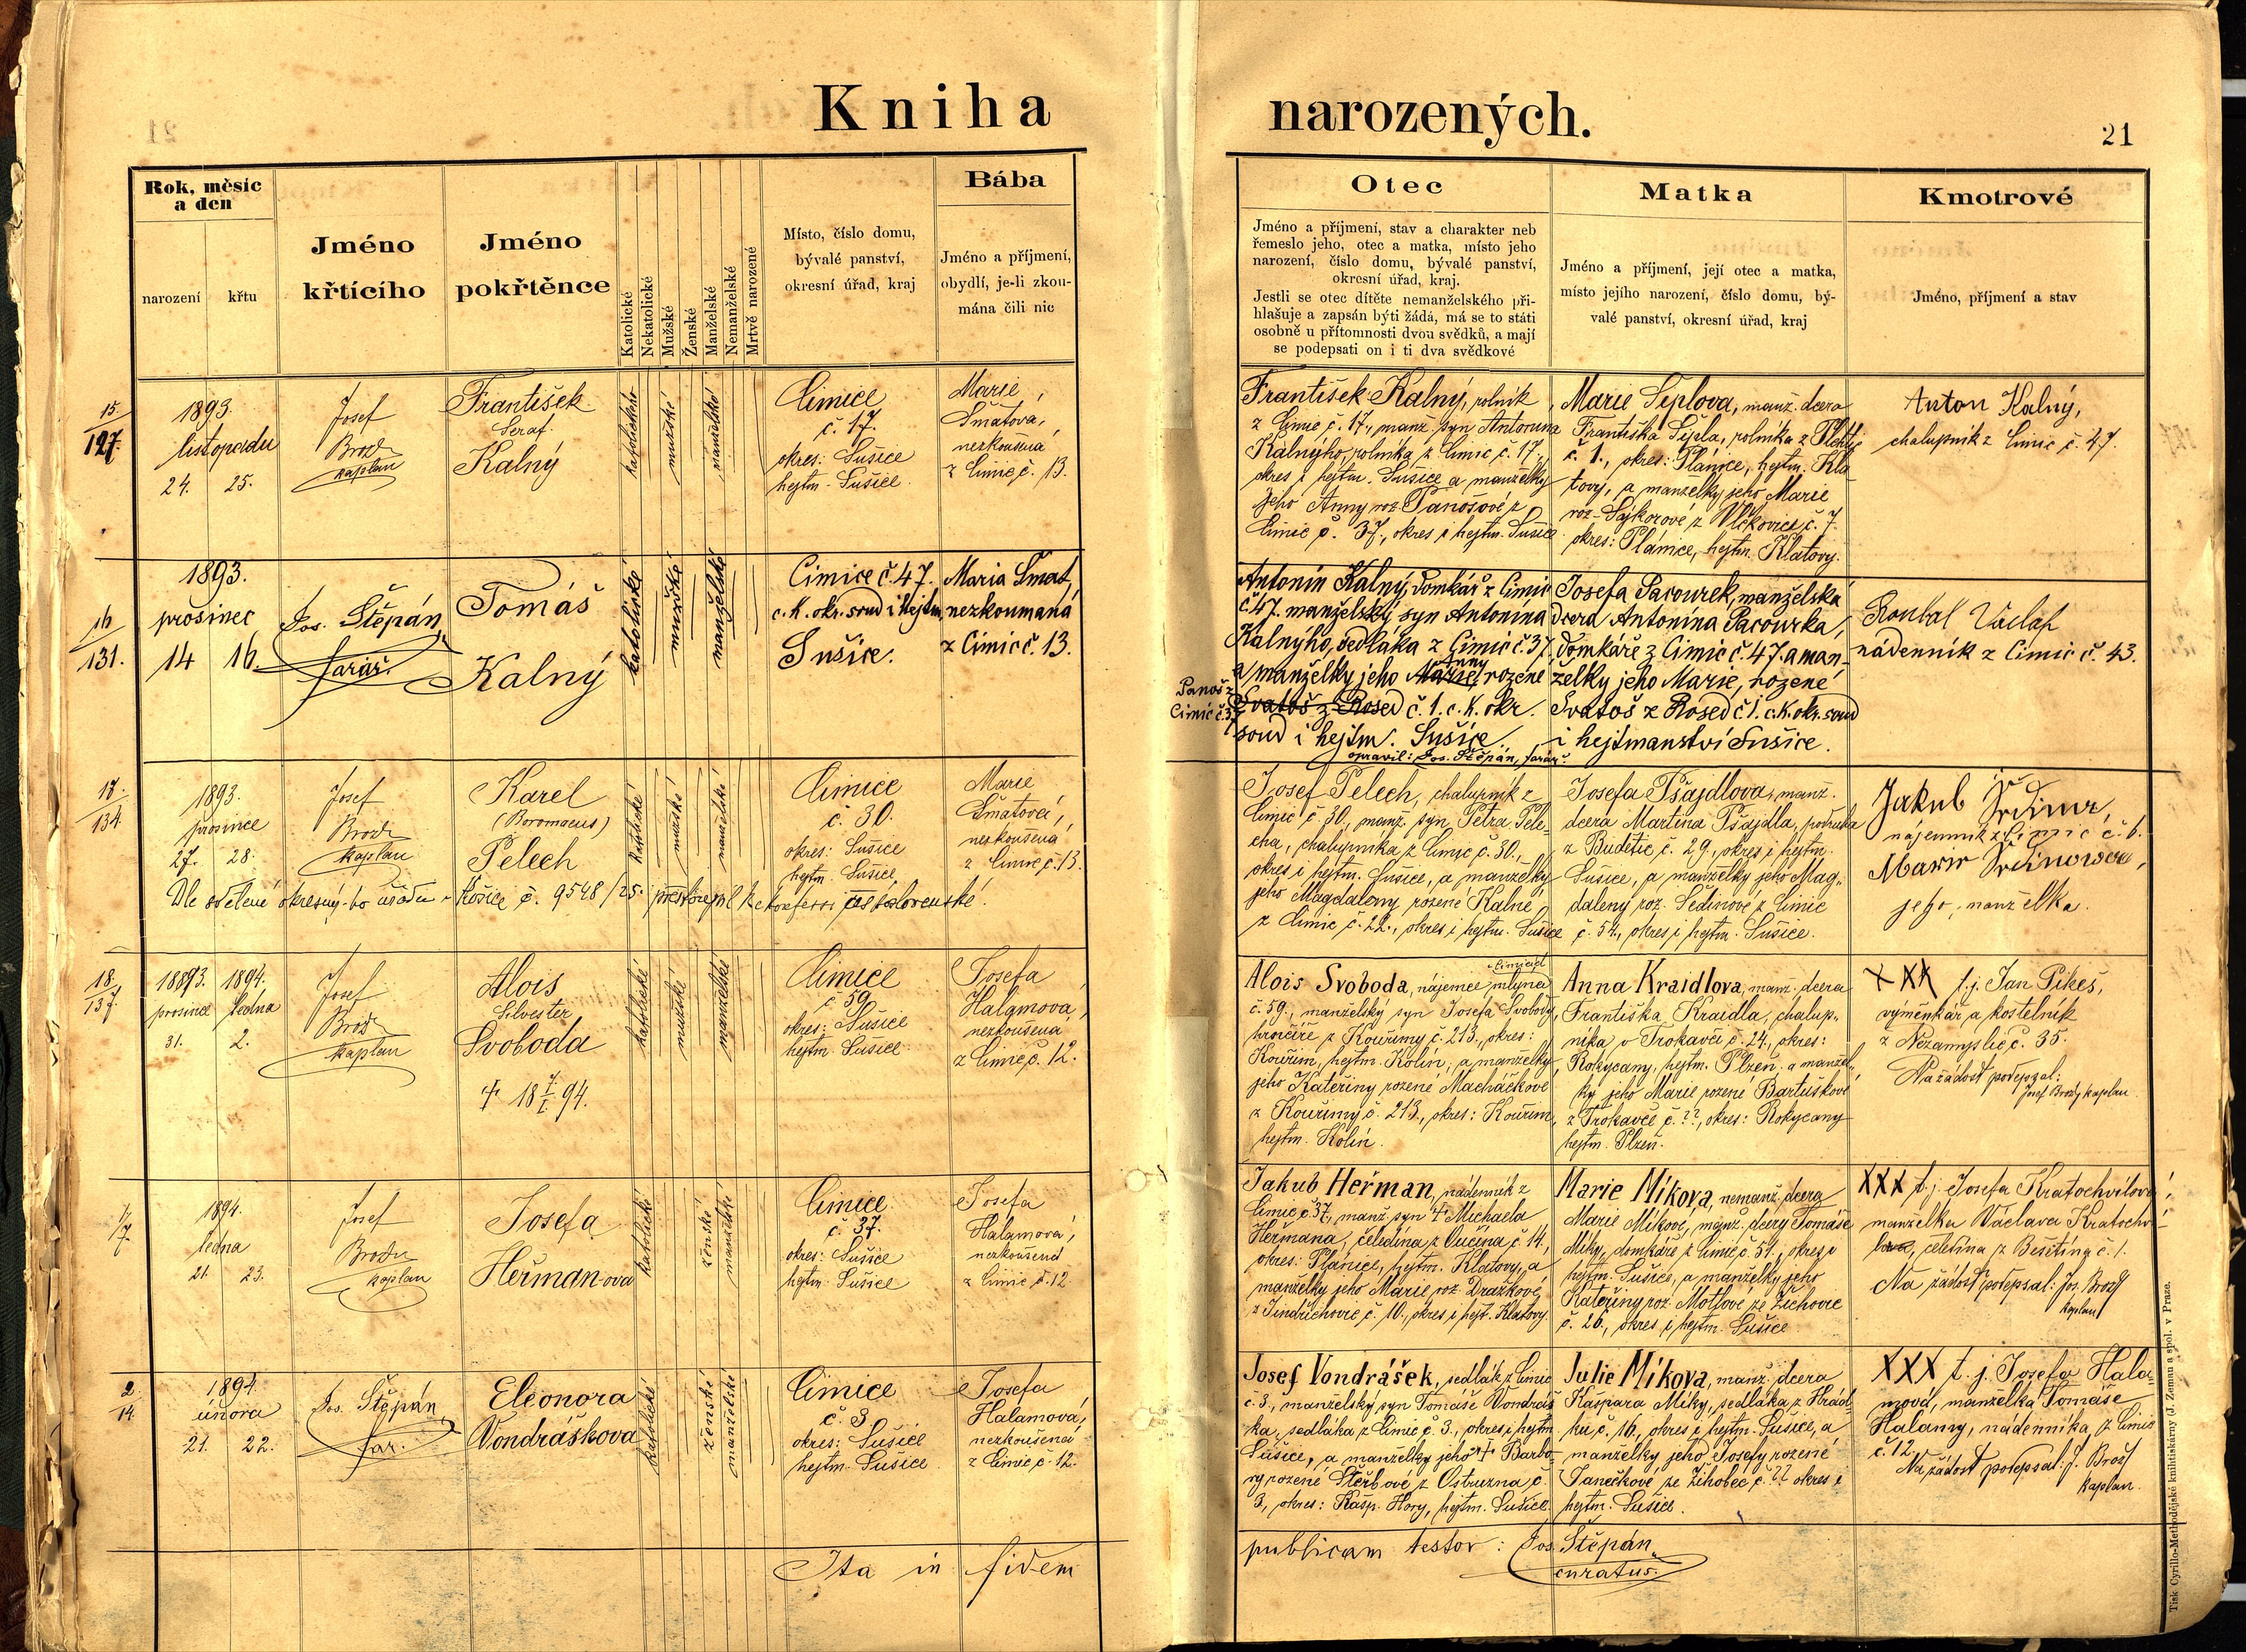 Kniha narozených.
21
Rok, měsíc
a den
narození
křtu
Jméno
křtícího
Jméno
pokřtěnce
Katolické
Nekatolické
Mužské
Ženské
Manželské
Nemanželské
Mrtvě narozené
Místo, číslo domu,
bývalé panství,
okresní úřad, kraj
Bába
Jméno a příjmení,
obydlí, je-li zkou-
mána čili nic
Otec
Jméno a příjmení, stav a charakter neb
řemeslo jeho, otec a matka, místo jeho
narození, číslo domu, bývalé panství,
okresní úřad, kraj.
Jestli se otec dítěte nemanželského při-
hlašuje a zapsán býti žádá, má se to státi
osobně u přítomnosti dvou svědků, a mají
se podepsati on i ti dva svědkové
Matka
Jméno a příjmení, její otec a matka,
místo jejího narození, číslo domu, bý-
valé panství, okresní úřad, kraj
Kmotrové
Jméno, příjmení a stav
15.
127.
1893.
listopadu
24. 25.
Josef
Brož
kaplan
František
Seraf.
Kalný
katolické
mužské
manželské
Čimice
č. 17.
okres: Sušice
hejtm. Sušice.
Marie
Šmatová,
nezkoušená
z Čimic č. 13.
František Kalný, rolník
z Čimic č. 17., manž. syn Antonína
Kalnýho, rolníka z Čimic č. 17.,
okres i hejtm. Sušice a manželky
jeho Anny roz. Panošové z
Čimic č. 37., okres i hejtm. Sušice
Marie Šeplova, manž. dcera
Františka Šepla, rolníka z
č. 1., okres: Plánice, hejtm. Kla-
tovy, a manželky jeho Marie
roz. Sýkorové z Vlčkovic č. 7.
okres: Plánice, hejtm. Klatovy.
Anton Kalný,
chalupník z Čimic č. 47.
16
131.
1893.
prosinec
14 16.
Jos. Štěpán,
farář.
Tomáš
Kalný
katolické
mužské
manželské
Čimice č. 47.
c. k. okr. soud i hejtm.
Sušice.
Maria Šmat,
nezkoumaná
z Čimic č. 13.
Antonín Kalný, domkář z Čimic
č. 47. manželský syn Antonína
Kalnýho, sedláka z Čimic č. 37.
Anny
a manželky jeho Marie, rozené
Panoš z
Čimic č. 37
Svatoš z Rosed č. 1. c. k. okr.
soud i hejtm. Sušice.
opravil: Jos. Štěpán, farář.
Josefa Pacourek, manželská
dcera Antonína Pacourka,
domkáře z Čimic č. 47. a man-
želky jeho Marie, rozené
Svatoš z Rosed č 1. c. k. okr. soud
i hejtmanství Sušice.
Roubal Václav
nádenník z Čimic č. 43.
17.
134.
1893.
prosince
27. 28.
Josef
Brož
kaplan
Karel
(Boromaeus)
Pelech
katolické
mužské
manželské
Čimice
č. 30.
okres: Sušice
hejtm. Sušice.
Marie
Šmatová,
nezkoušená
z Čimic č. 13.
Dle sdělené okresný-ho úřadu v Košice č. 9548/25 přestoupil ke konfessi československé.
Josef Pelech, chalupník z
Čimic č. 30., manž. syn Petra Pele-
cha, chalupníka z Čimic č. 30.,
okres i hejtm. Sušice, a manželky
jeho Magdaleny rozené Kalné
z Čimic č. 22., okres i hejtm. Sušice
Josefa Pšajdlova, manž.
dcera Martina Pšajdla, podruha
z Budětic č. 29., okres i hejtm.
Sušice, a manželky jeho Mag-
daleny roz. Šedinové z Čimic
č. 54., okres i hejtm. Sušice.
Jakub
nájemník z Čimic č. 6.
jeho manželka.
18.
137.
18893. 1894.
prosince ledna
31. 2.
Josef
Brož
kaplan
Alois
Silvester
Svoboda
† 18 7/I. 94.
katolické
mužské
manželské
Čimice
č 59.
okres: Sušice
hejtm. Sušice.
Josefa
Halamová,
nezkoušená
z Čimic č. 12.
Alois Svoboda, nájemce mlýna
č. 59., manželský syn Josefa Svobody,
hrnčíře z Kouřimy č. 213., okres:
Kouřim, hejtm. Kolín; a manželky
jeho Kateřiny rozené Macháčkové
z Kouřimy č. 213., okres: Kouřim,
hejtm. Kolín.
Anna Kraidlova, manž. dcera
Františka Kraidla, chalup-
níka v Trokavči č. 24., okres:
Rokycany, hejtm. Plzeň, a manžel-
ky jeho Marie rozené Bartuškové
z Trokavče č. ??, okres: Rokycany
hejtm. Plzeň.
XXX t. j. Jan Pikeš,
výměnkář a kostelník
z Nezamyslic č. 35.
Na žádost podepsal:
Josef Brož, kaplan.
1/
7
1894.
ledna
21. 23.
Josef
Brož
kaplan
Josefa
Heřmanova
katolické
ženské
manželské
Čimice
č. 37.
okres: Sušice
hejtm. Sušice
Josefa
Halamová,
nezkoušená
z Čimic č. 12
Jakub Heřman, nádenník z
Čimic č. 37, manž. syn † Michaela
Heřmana, čeledína z Vučína č 14,
okres: Plánice, hejtm. Klatovy, a
manželky jeho Marie roz. Dražkové
z Jindřichovic č. 10., okres i hejt. Klatovy.
Marie Míkova, nemanž. dcera
Marie Míkové, manž. dcery Tomáše
Míky, domkáře z Čimic č. 51., okres i
hejtm. Sušice, a manželky jeho
Kateřiny roz. Motlové ze Žichovic
č. 26., okres i hejtm. Sušice.
XXX t. j. Josefa Kratochvílova,
manželka Václava Kratochví-
la, čeledína z Bešetína č. 1.
Na žádost podepsal: Jos. Brož
kaplan
2.
14.
1894.
února
21. 22.
Jos. Štěpán,
far.
Eleonora
Vondráškova
katolické
ženské
manželské
Čimice
č. 3
okres: Sušice
hejtm. Sušice.
Josefa
Halamová,
nezkoušená
z Čimic č. 12.
Josef Vondrášek, sedlák z Čimic
č. 3., manželský syn Tomáše Vondráš-
ka, sedláka z Čimic č. 3., okres i hejtm.
Sušice, a manželky jeho † Barbo-
ry rozené Štěrbové z Ostružna č.
3, okres: Kašp. Hory, hejtm. Sušice.
Julie Míkova, manž. dcera
Kašpara Míky, sedláka z Hrád-
ku č. 16., okres i hejtm. Sušice, a
manželky jeho Josefy rozené
Janečkové ze Žihobec č. ?? okres i
hejtm. Sušice.
XXX t. j. Josefa Hala-
mová, manželka Tomáše
Halamy, nádenníka z Čimic
č. 12.
Na žádost podepsal: J. Brož
kaplan.
Ita in fidem
publicam testor: Jos. Štěpán,
curatus.
Tisk Cyrillo-Methodějské knihtiskárny (J. Zeman a spol. v Praze.